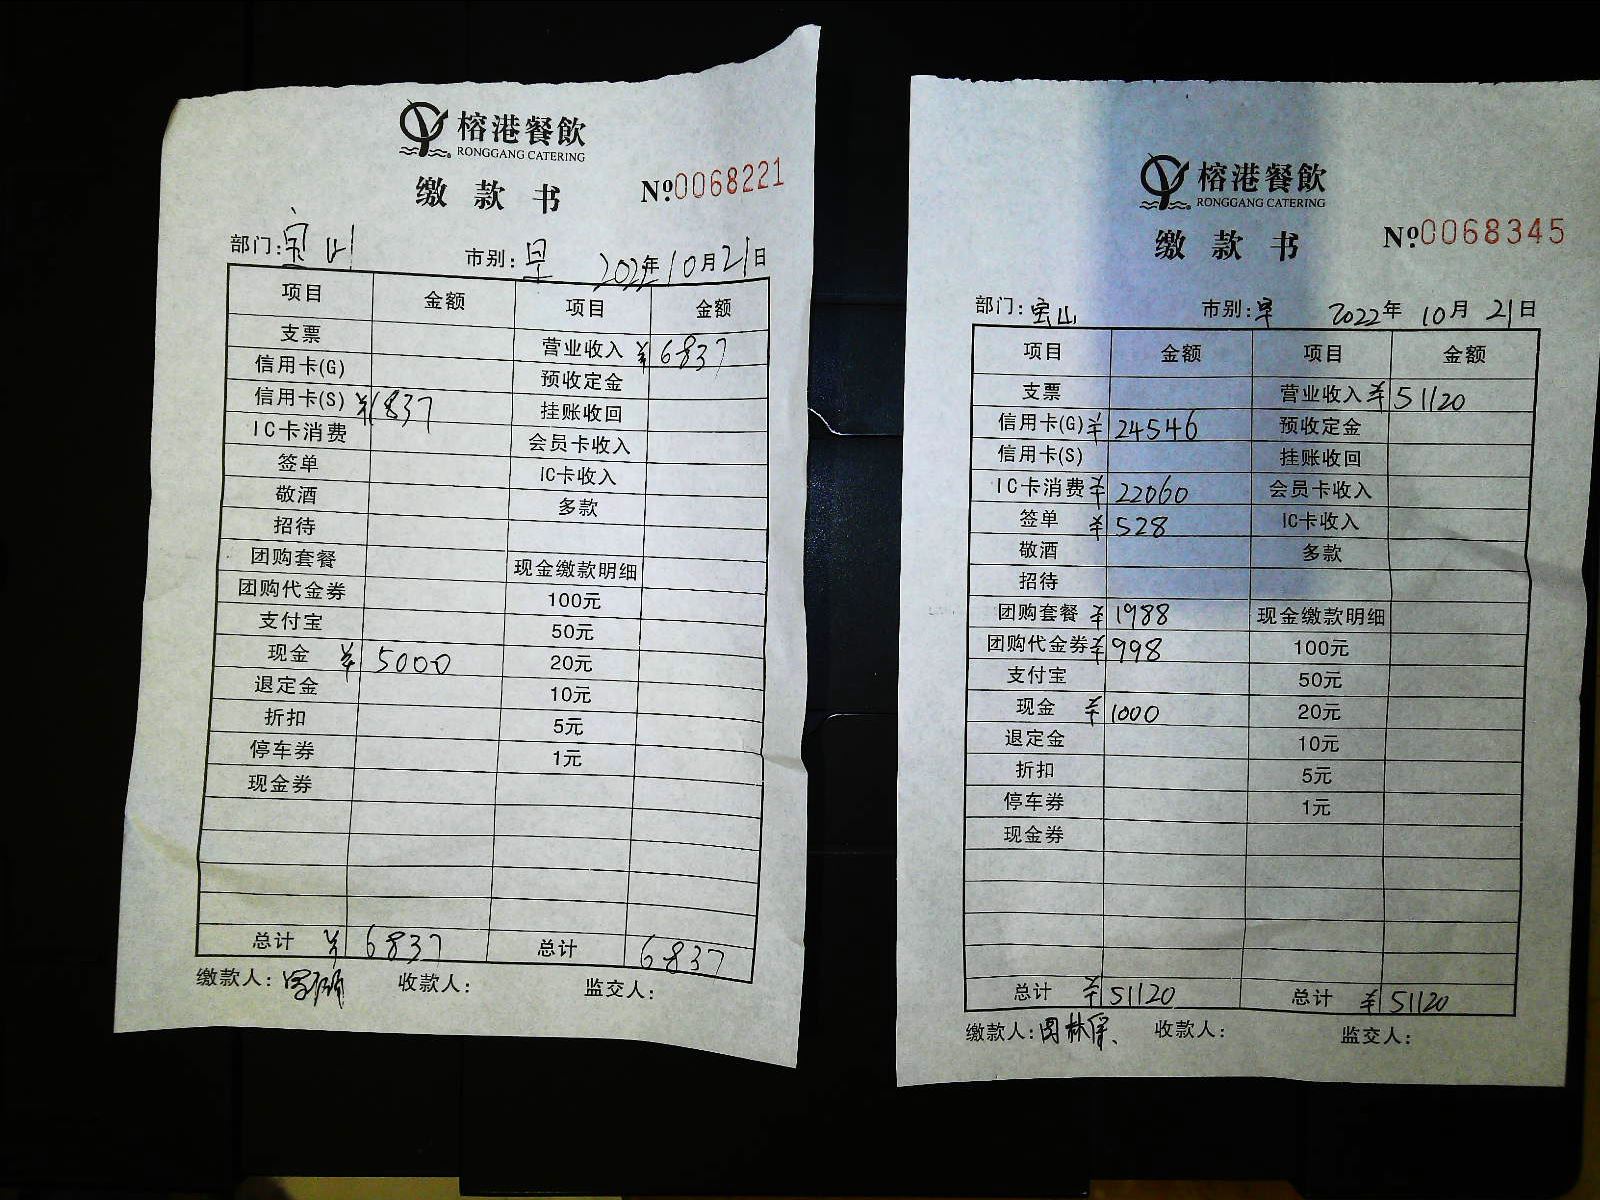 榕港餐飲
RONGGANG CATERING
缴款书 №0068221
部门:宝山 市别:早 2022年10月21日
项目 金额 项目 金额
支票 营业收入 ¥6837
信用卡(G) 预收定金
信用卡(S) ¥1837 挂账收回
IC卡消费 会员卡收入
签单 IC卡收入
敬酒 多款
招待
团购套餐 现金缴款明细
团购代金券 100元
支付宝 50元
现金 ¥5000 20元
退定金 10元
折扣 5元
停车券 1元
现金券
总计 ¥6837 总计 6837
缴款人: 收款人: 监交人:
榕港餐飲
RONGGANG CATERING
缴款书 №0068345
部门:宝山 市别:早 2022年10月21日
项目 金额 项目 金额
支票 营业收入 ¥51120
信用卡(G) ¥24546 预收定金
信用卡(S) 挂账收回
IC卡消费 ¥22060 会员卡收入
签单 ¥528 IC卡收入
敬酒 多款
招待
团购套餐 ¥1988 现金缴款明细
团购代金券 ¥998 100元
支付宝 50元
现金 ¥1000 20元
退定金 10元
折扣 5元
停车券 1元
现金券
总计 ¥51120 总计 ¥51120
缴款人: 收款人: 监交人: